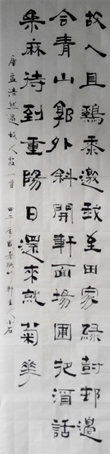 故人具鷄黍邀我至田家綠樹邨邊
合青山郭外斜開軒面場圃把酒話
桑麻待到重陽日還來就菊華
唐孟浩然過故人莊一首 甲午